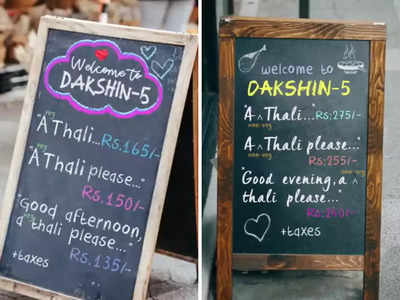 Welcome to
DAKSHIN-5
veg
"A ^ Thali..." Rs.165/-
veg
"A ^ Thali please..."
Rs.150/-
"Good afternoon,
veg
a ^ thali please..."
Rs.135/-
+taxes
welcome to
DAKSHIN-5
"A ^ Thali..." Rs:275/-
non-veg
"A ^ Thali please..."
non-veg Rs:255/-
non-veg
"Good evening, a ^
thali please..."
+taxes